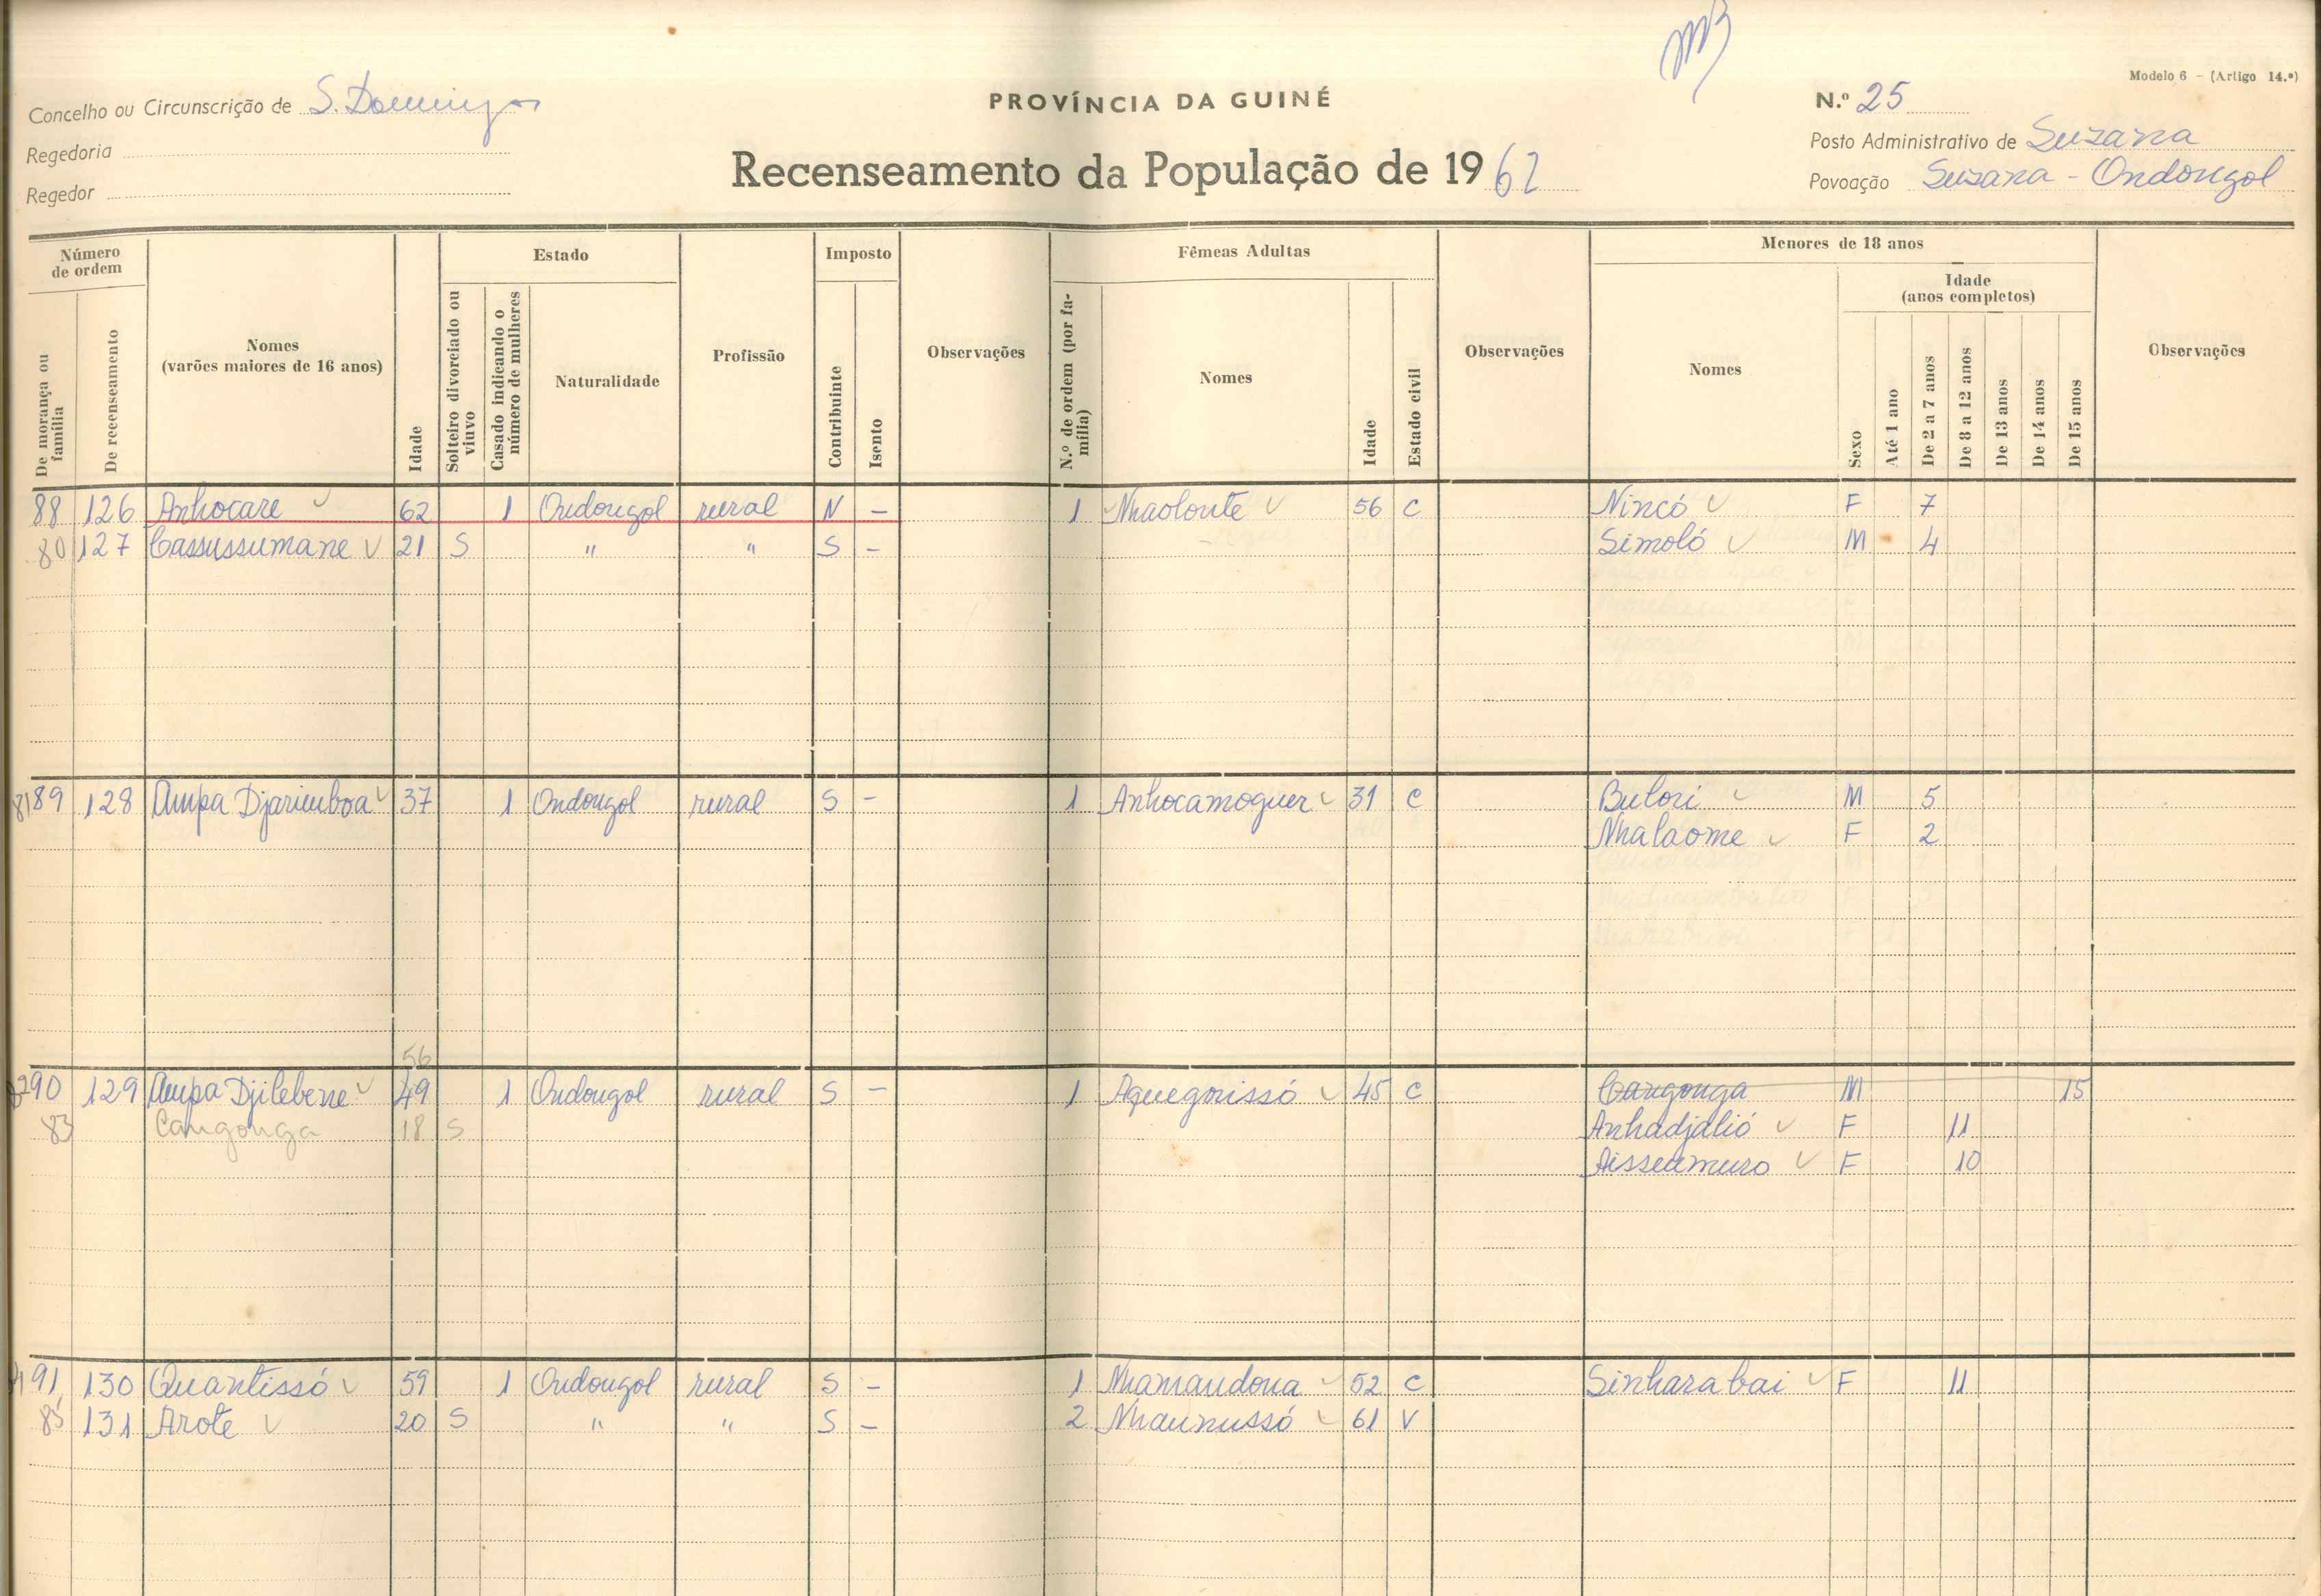 Modelo 6 - (Artigo 14.º)
Concelho ou Circunscrição de S. Domingos
PROVÍNCIA DA GUINÉ
N.º 25
Regedoria
Posto Administrativo de Suzana
Regedor
Recenseamento da População de 1962
Povoação Suzana - Ondongol
Número de ordem
De morança ou família
De recenseamento
Nomes
(varões maiores de 16 anos)
Idade
Estado
Solteiro divorciado ou viuvo
Casado indicando o número de mulheres
Naturalidade
Profissão
Imposto
Contribuinte
Isento
Observações
Fêmeas Adultas
N.º de ordem (por família)
Nomes
Idade
Estado civil
Observações
Menores de 18 anos
Nomes
Sexo
Idade
(anos completos)
Até 1 ano
De 2 a 7 anos
De 8 a 12 anos
De 13 anos
De 14 anos
De 15 anos
Observações
88 126 Anhocare 62 1 Ondongol rural N - 1 Nhaolonte 56 C Nincó F 7
80 127 Cassussumane 21 S " " S - Simoló M 4
81 89 128 Ampa Djariemboa 37 1 Ondongol rural S - 1 Anhocamoguer 31 C Bulori M 5
Nhalaome F 2
56
90 129 Ampa Djilebene 49 1 Ondongol rural S - 1 Aquegorissó 45 C Cangonga M 15
83 Cangonga 18 S Anhadjalió F 11
Aisseumuro F 10
91 130 Quantissó 59 1 Ondongol rural S - 1 Nhamandona 52 C Sinharabai F 11
85 131 Arote 20 S " " S - 2 Nhaunussó 61 V